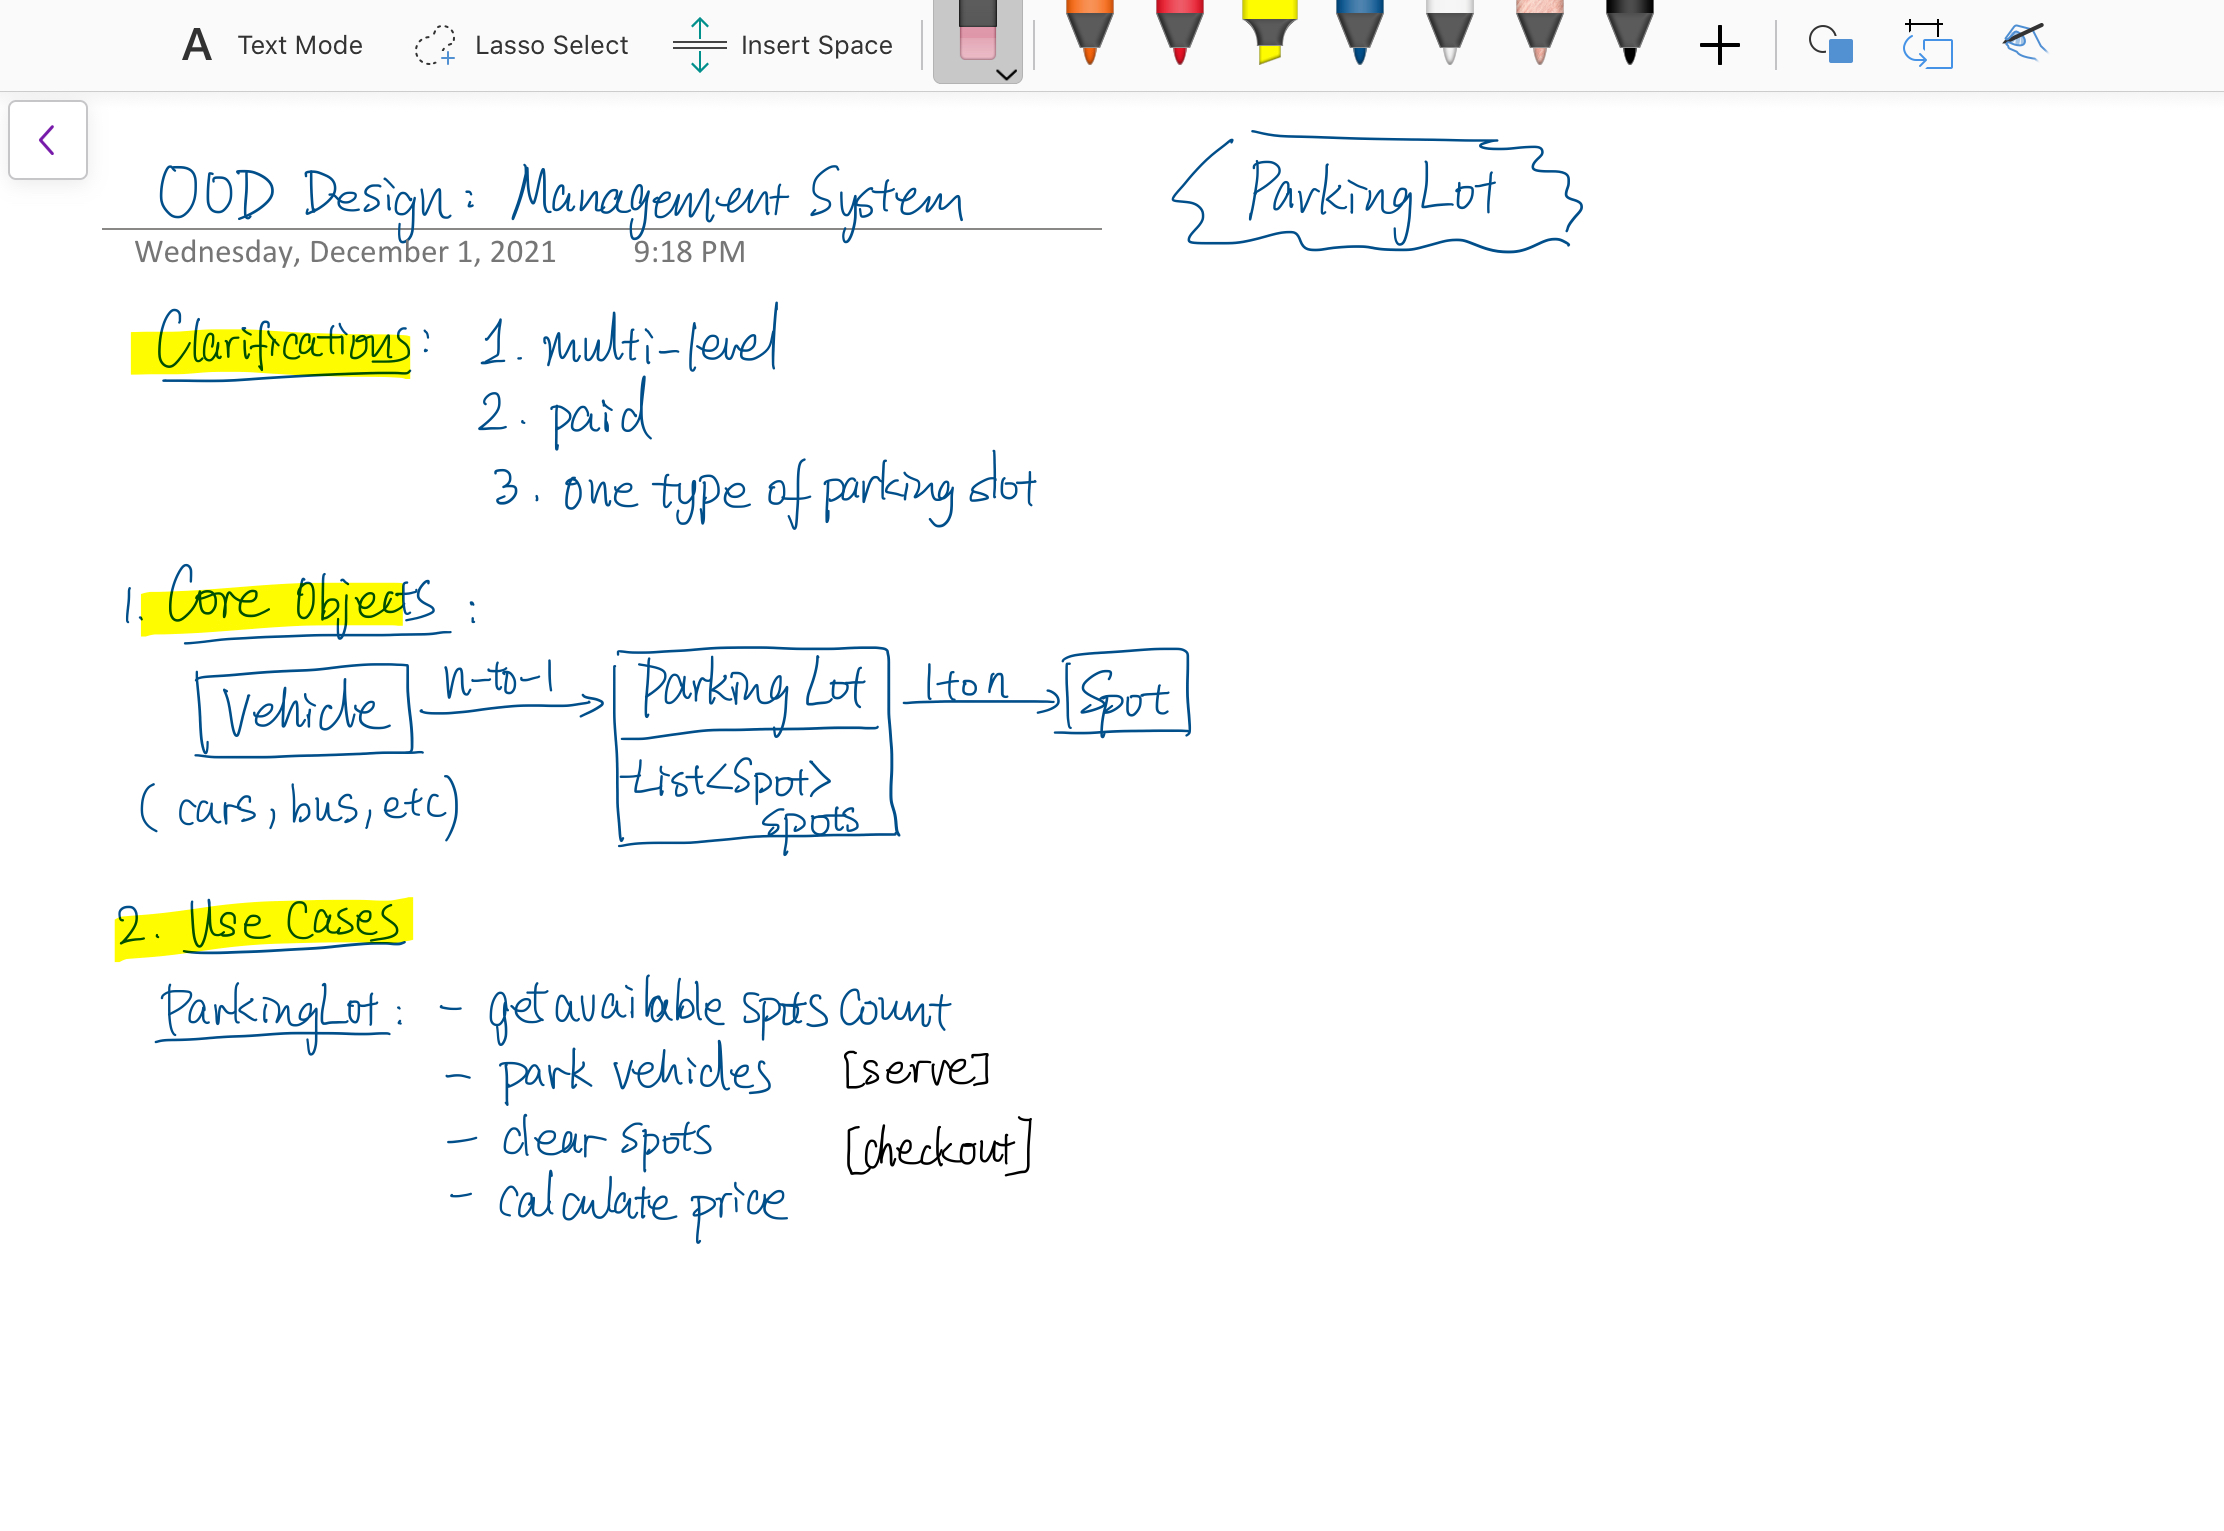 A Text Mode Lasso Select Insert Space
OOD Design: Management System
ParkingLot
Wednesday, December 1, 2021 9:18 PM
Clarifications: 1. multi-level
2. paid
3. one type of parking slot
1. Core Objects:
Vehicle n-to-1 Parking Lot 1 to n Spot
-List<Spot>
spots
(cars, bus, etc)
2. Use Cases
ParkingLot: - get available spots Count
- park vehicles [serve]
- clear spots [checkout]
- calculate price